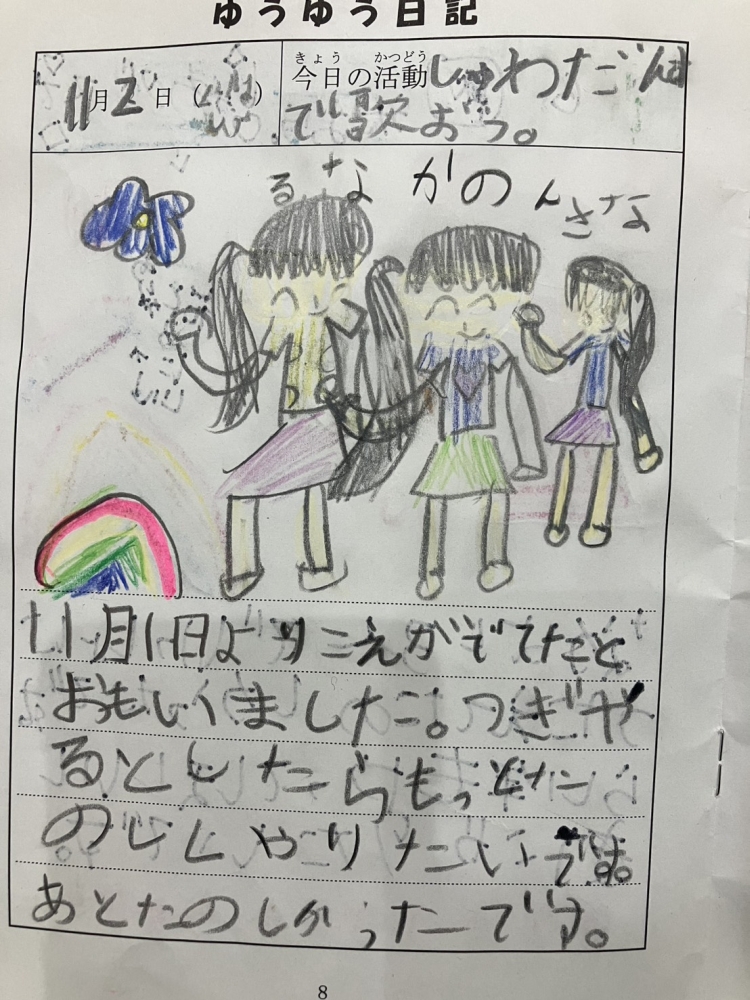 ゆうゆう日記
11月2日（
きょう かつどう
今日の活動しゅわだんす
で歌おう。
るな かの かんな
11月1日よりこえがでてたと
おもいました。つぎや
るとしたらもっとたの
のしくやりたいです。
あとたのしかったです。
8